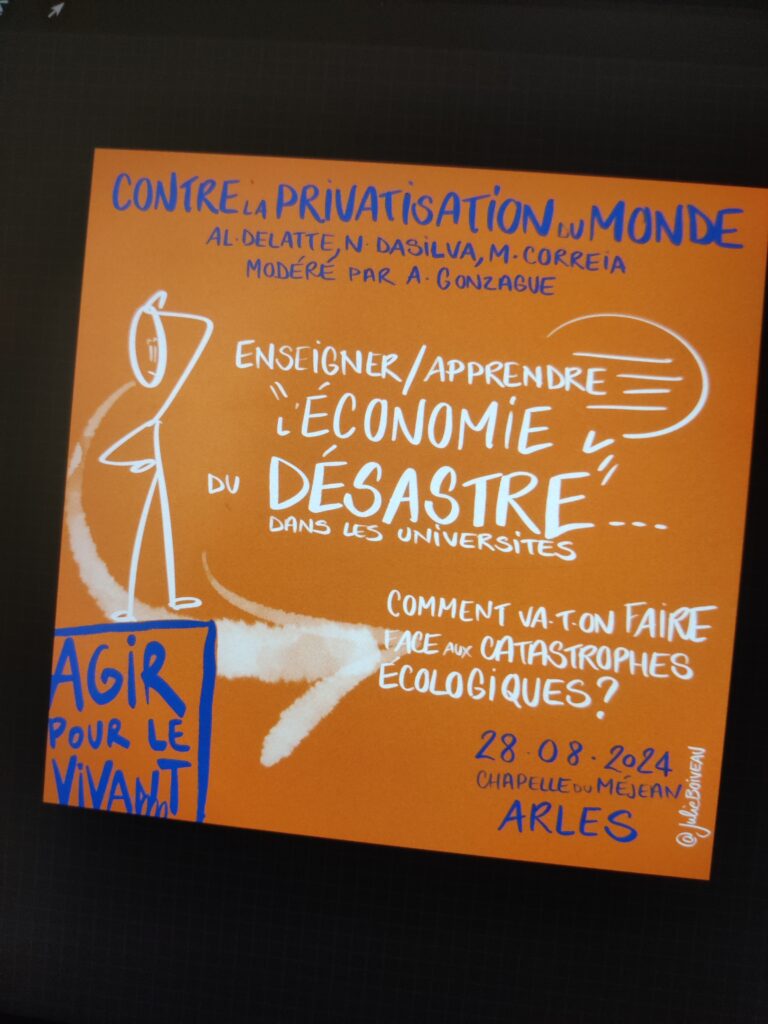 CONTRE LA PRIVATISATION DU MONDE
AL.DELATTE, N. DASILVA, M. CORREIA
MODÉRÉ PAR A. GONZAGUE
ENSEIGNER/APPRENDRE
"L'ÉCONOMIE
DU DÉSASTRE"...
DANS LES UNIVERSITÉS
COMMENT VA-T-ON FAIRE
FACE AUX CATASTROPHES
ÉCOLOGIQUES?
AGIR
POUR LE
VIVANT
28.08.2024
CHAPELLE DU MÉJEAN
ARLES
@JulieBoiveau